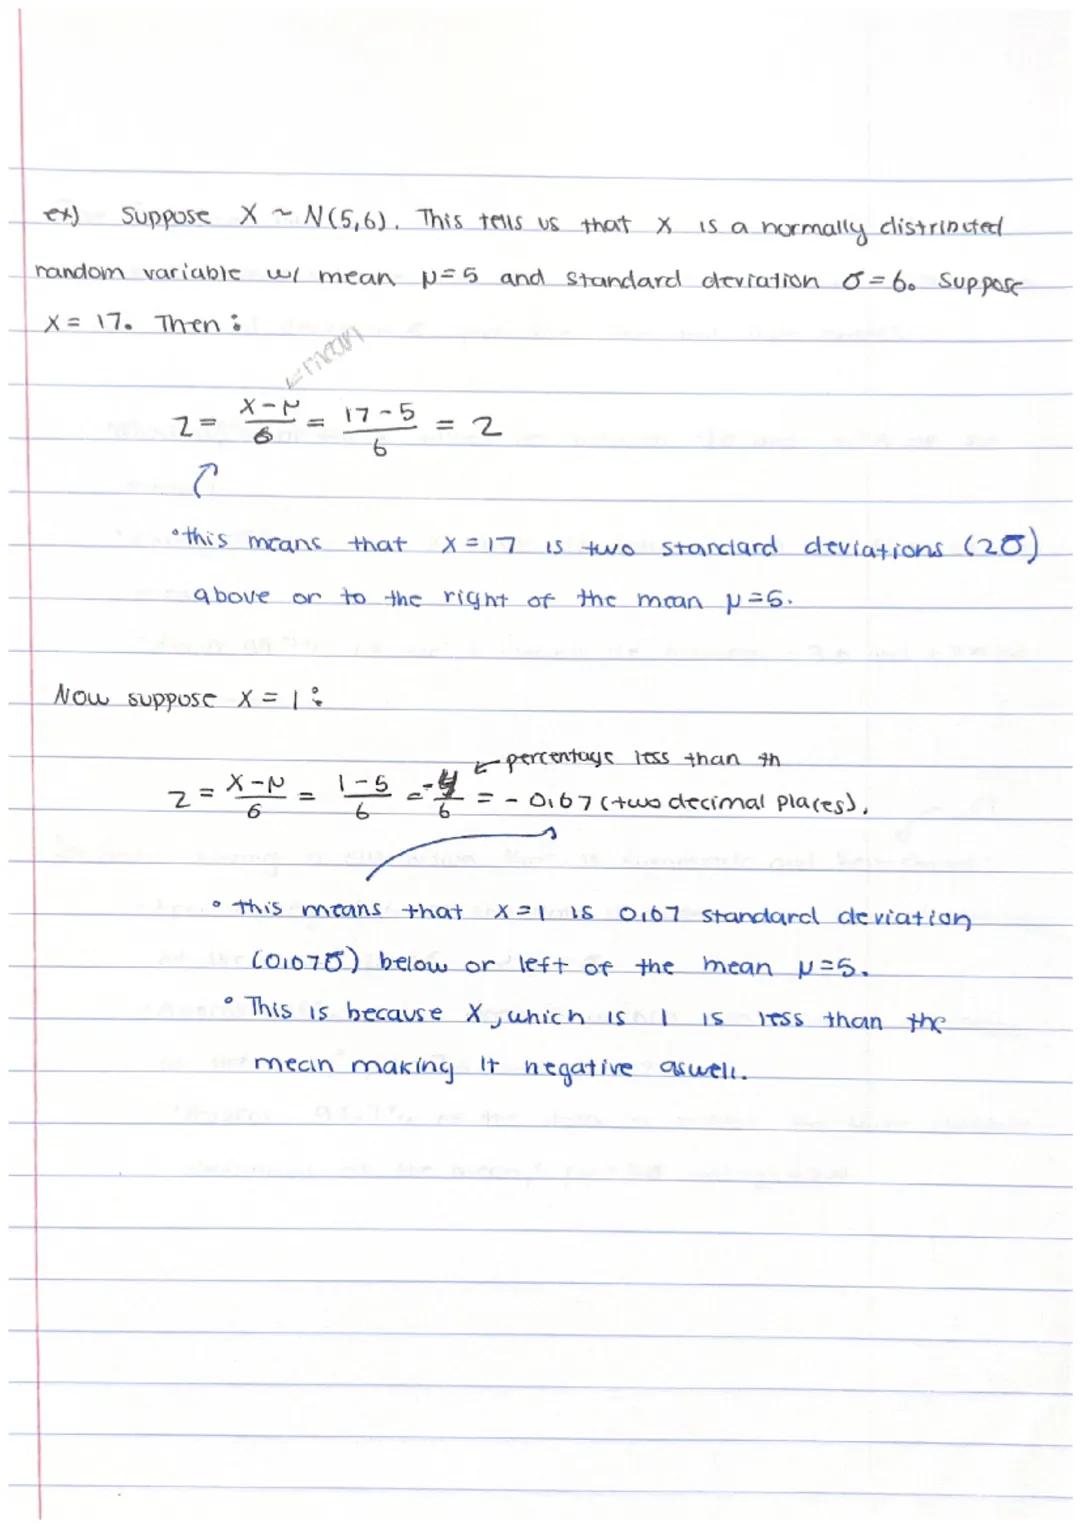 ex) Suppose X ~ N(5,6). This tells us that X is a normally distributed
random variable w/ mean μ=5 and standard deviation σ=6. Suppose
X = 17. Then:
←mean
z = X-μ/6 = 17-5/6 = 2
• this means that X=17 is two standard deviations (2σ)
above or to the right of the mean μ=5.
Now suppose X = 1:
← percentage less than th
z = X-μ/6 = 1-5/6 = -4/6 = -0.67 (two decimal places).
• this means that X=1 is 0.67 standard deviation
(0.67σ) below or left of the mean μ=5.
• This is because X, which is 1 is less than the
mean making it negative aswell.